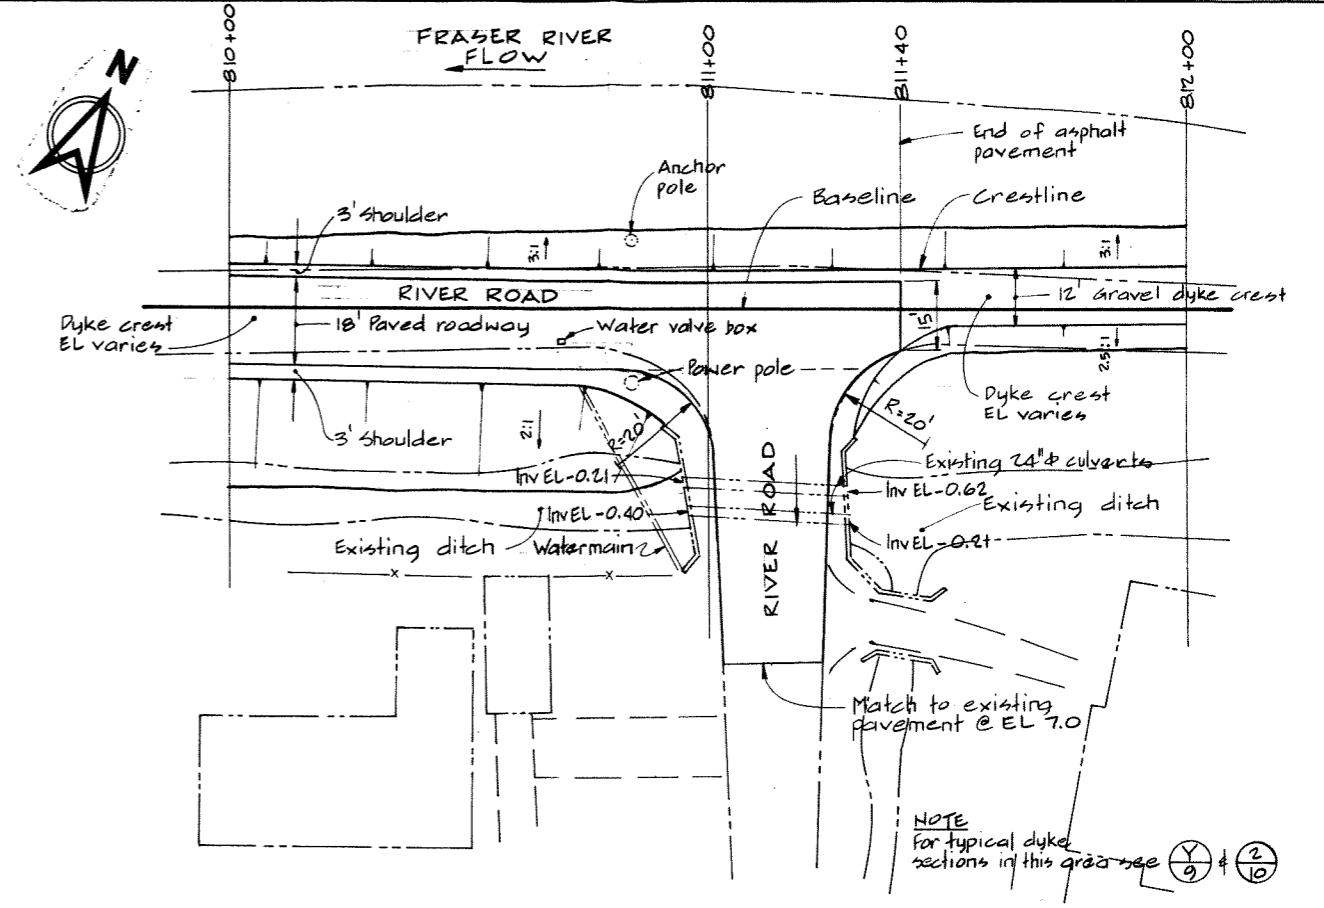 FRASER RIVER
FLOW
N
810+00
811+00
811+40
812+00
End of asphalt
pavement
Anchor
pole
Baseline
Crestline
3' Shoulder
3:1
3:1
RIVER ROAD
12' Gravel dyke crest
Dyke crest
EL varies
18' Paved roadway
Water valve box
15'
2.5:1
Power pole
Dyke crest
EL varies
R=20'
R=20'
2:1
3' Shoulder
Existing 24"ϕ culverts
Inv EL-0.21
Inv EL-0.62
Inv EL-0.40
Existing ditch
Inv EL-0.21
Existing ditch
Watermain
RIVER ROAD
x
x
Match to existing
pavement @ EL 7.0
NOTE
For typical dyke
sections in this area see Y/9 & 2/10